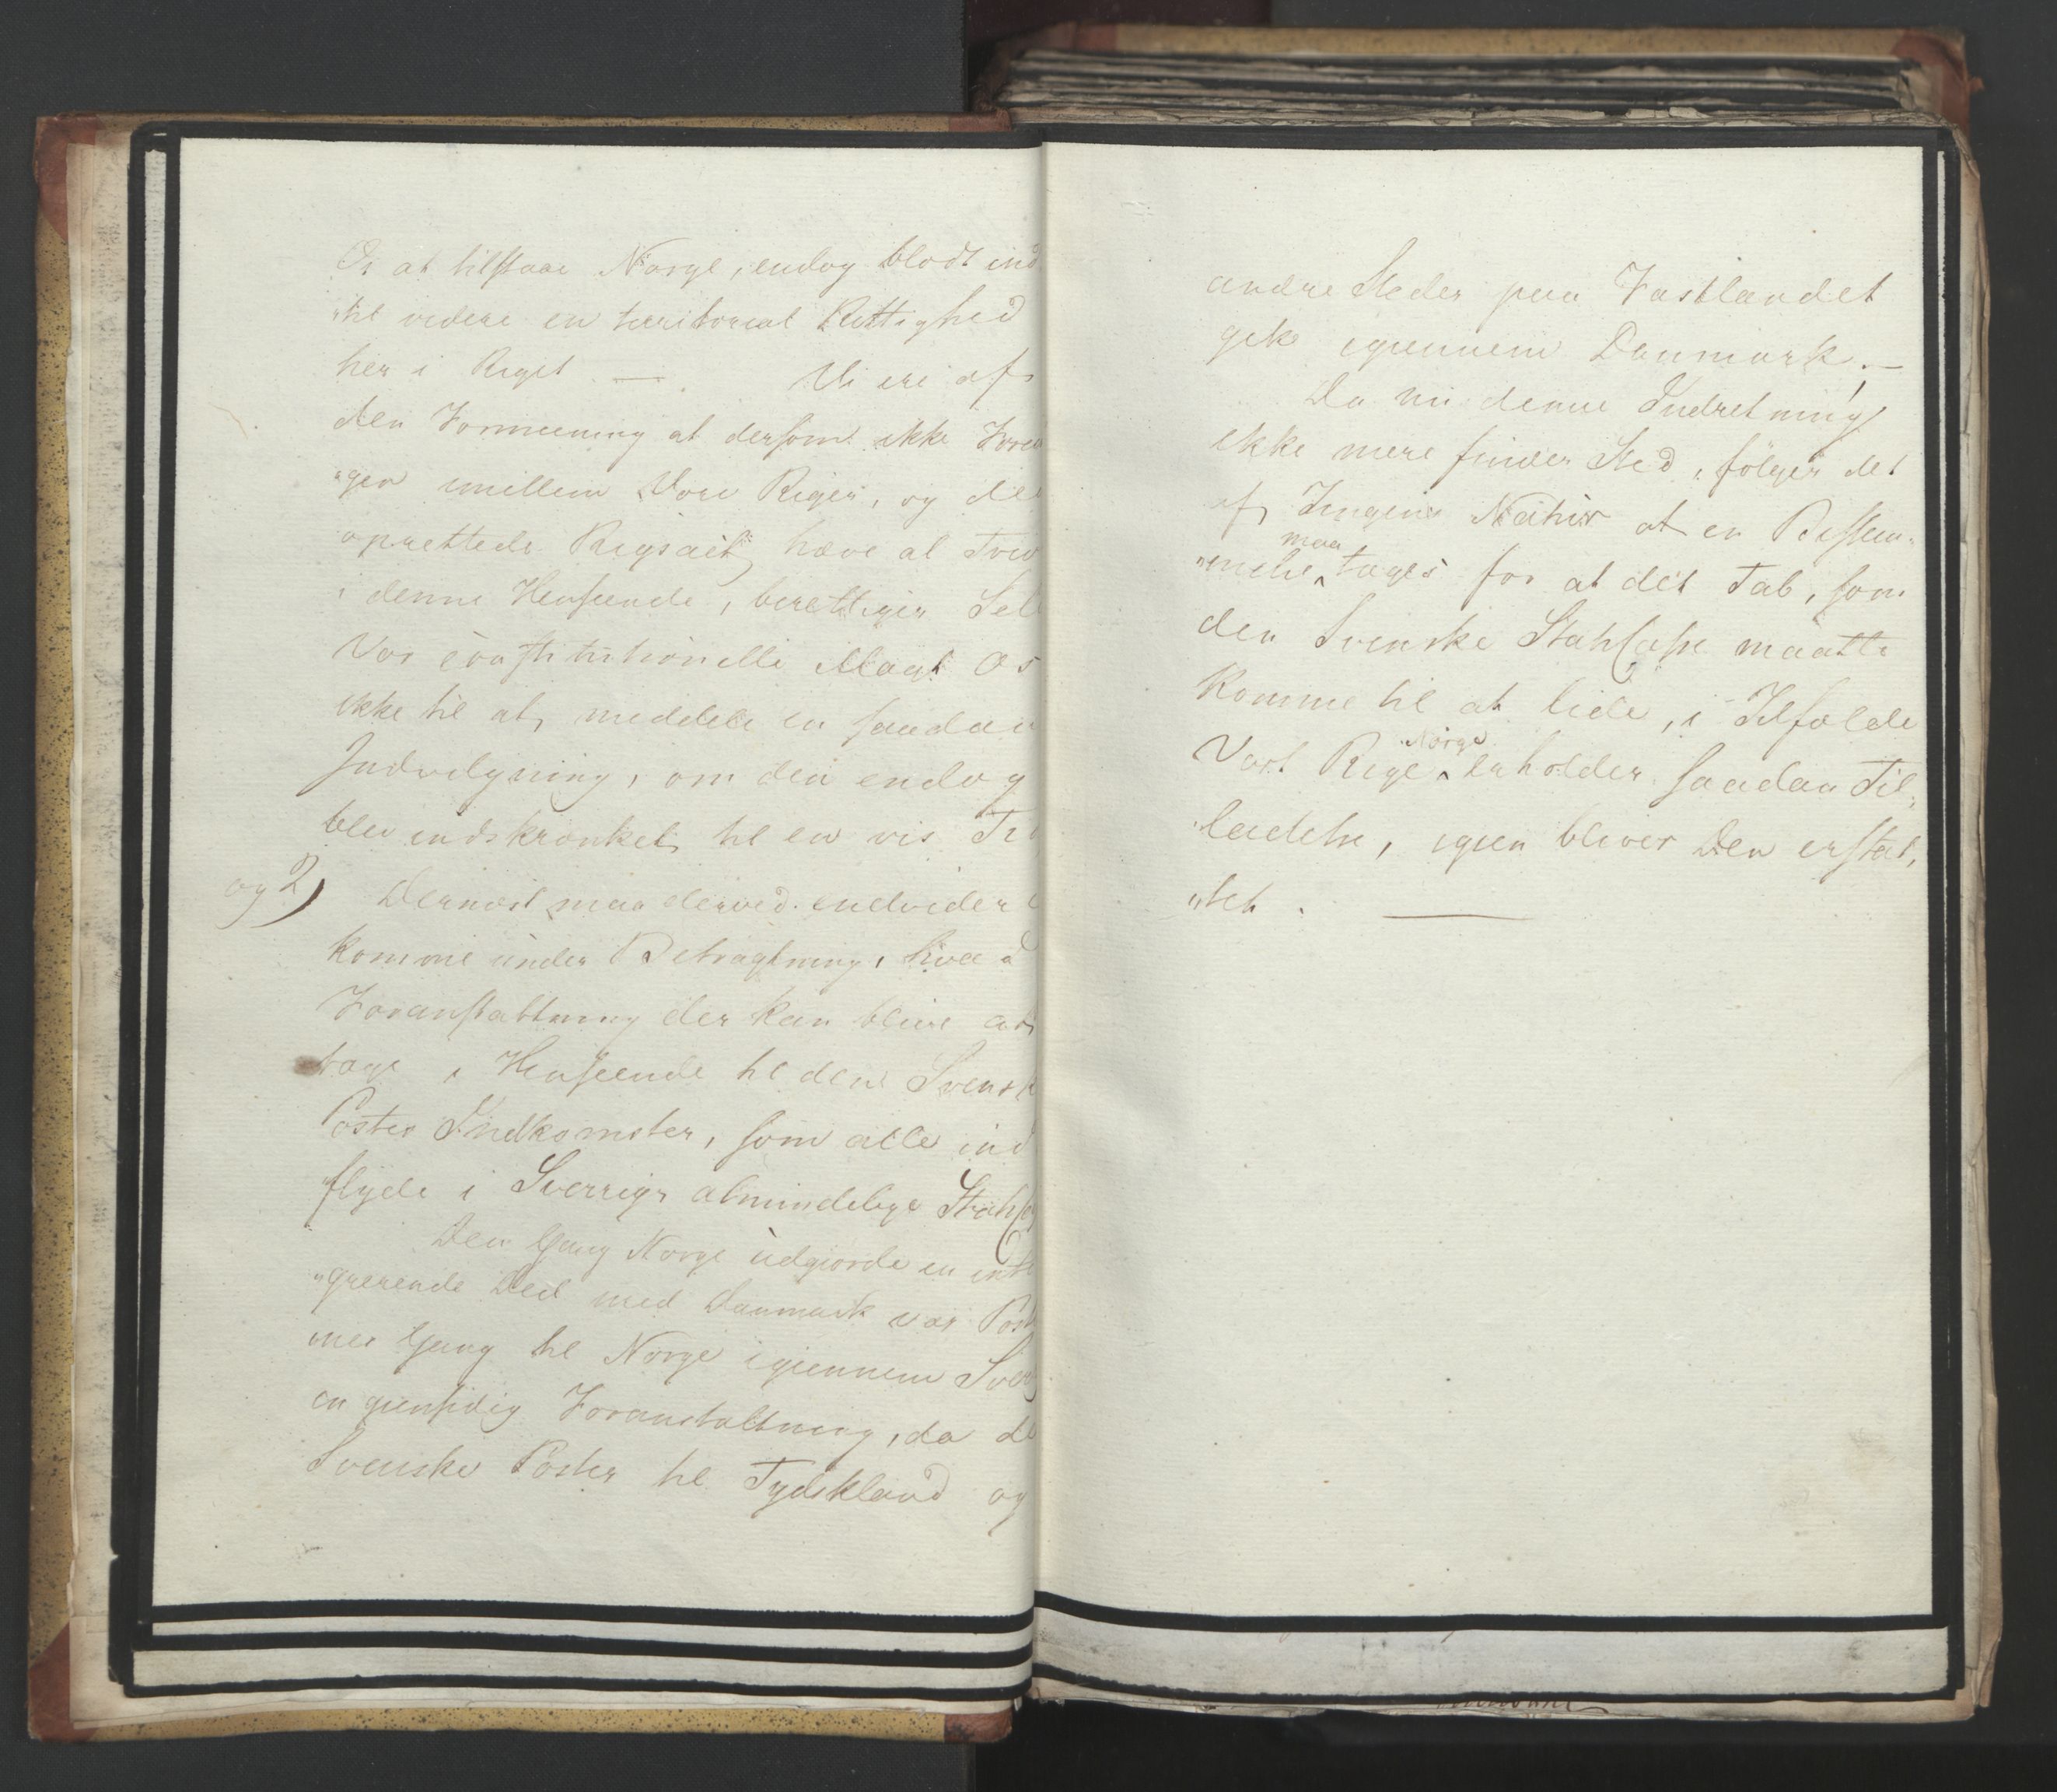 Os at tilstaae Norge, endog blodt ind
"til videre en territorial Rettighed
her i Riget —. Vi ere af
den Formeening at dersom ikke Foren
"gen imellem Vore Riger, og den
oprettede Rigsact, hæve al Tviv
i denne Henseende, berettiger Sel
Vor constitutionelle Magt Os
ikke til at meddele en saadan
Indvilgning, om den endog
blev indskrænket til en vis Tid
og 2) Dernæst maa derved endvidere
komme under Betragtning, hvad
Foranstaltning der kan blive at
tage i Henseende til den Svensk
Postes Indkomster, som alle ind
flyde i Sverrigs almindelige Statsca
Den Gang Norge udgiorde en inte
"grerende Deel med Danmark var Post
nes Gang til Norge igiennem Sver
en giensidig Foranstaltning, da de
Svenske Poster til Tydskland og
andre Steder paa Fastlandet
gik igiennem Danmark. —
Da nu denne Indretning
ikke mere finder Sted, følger det
af Tingenes Natur at en Bestem-
"melse maa tages for at det Tab, som
den Svenske Statscasse maatte
komme til at lide, i Tilfælde
Vort Rige Norge erholder saadan Til-
"ladelse, igien bliver Den erstat-
"tet. —